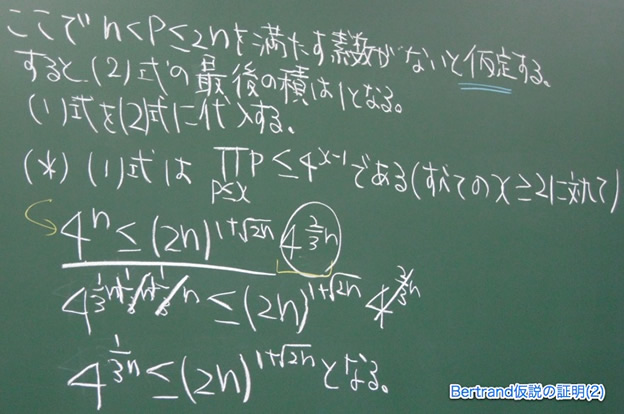 ここでn<P≤2nを満たす素数がないと仮定する。
すると、(2)式の最後の積は1となる。
(1)式を(2)式に代入する。
(*) (1)式は ∏_{P≤X} P ≤ 4^{x-1} である(すべてのx≥2に対して)
4^n ≤ (2n)^{1+√2n} 4^{2/3 n}
4^{1/3 n + 1/3 n + 1/3 n} ≤ (2n)^{1+√2n} 4^{2/3 n}
4^{1/3 n} ≤ (2n)^{1+√2n} となる。
Bertrand仮説の証明(2)